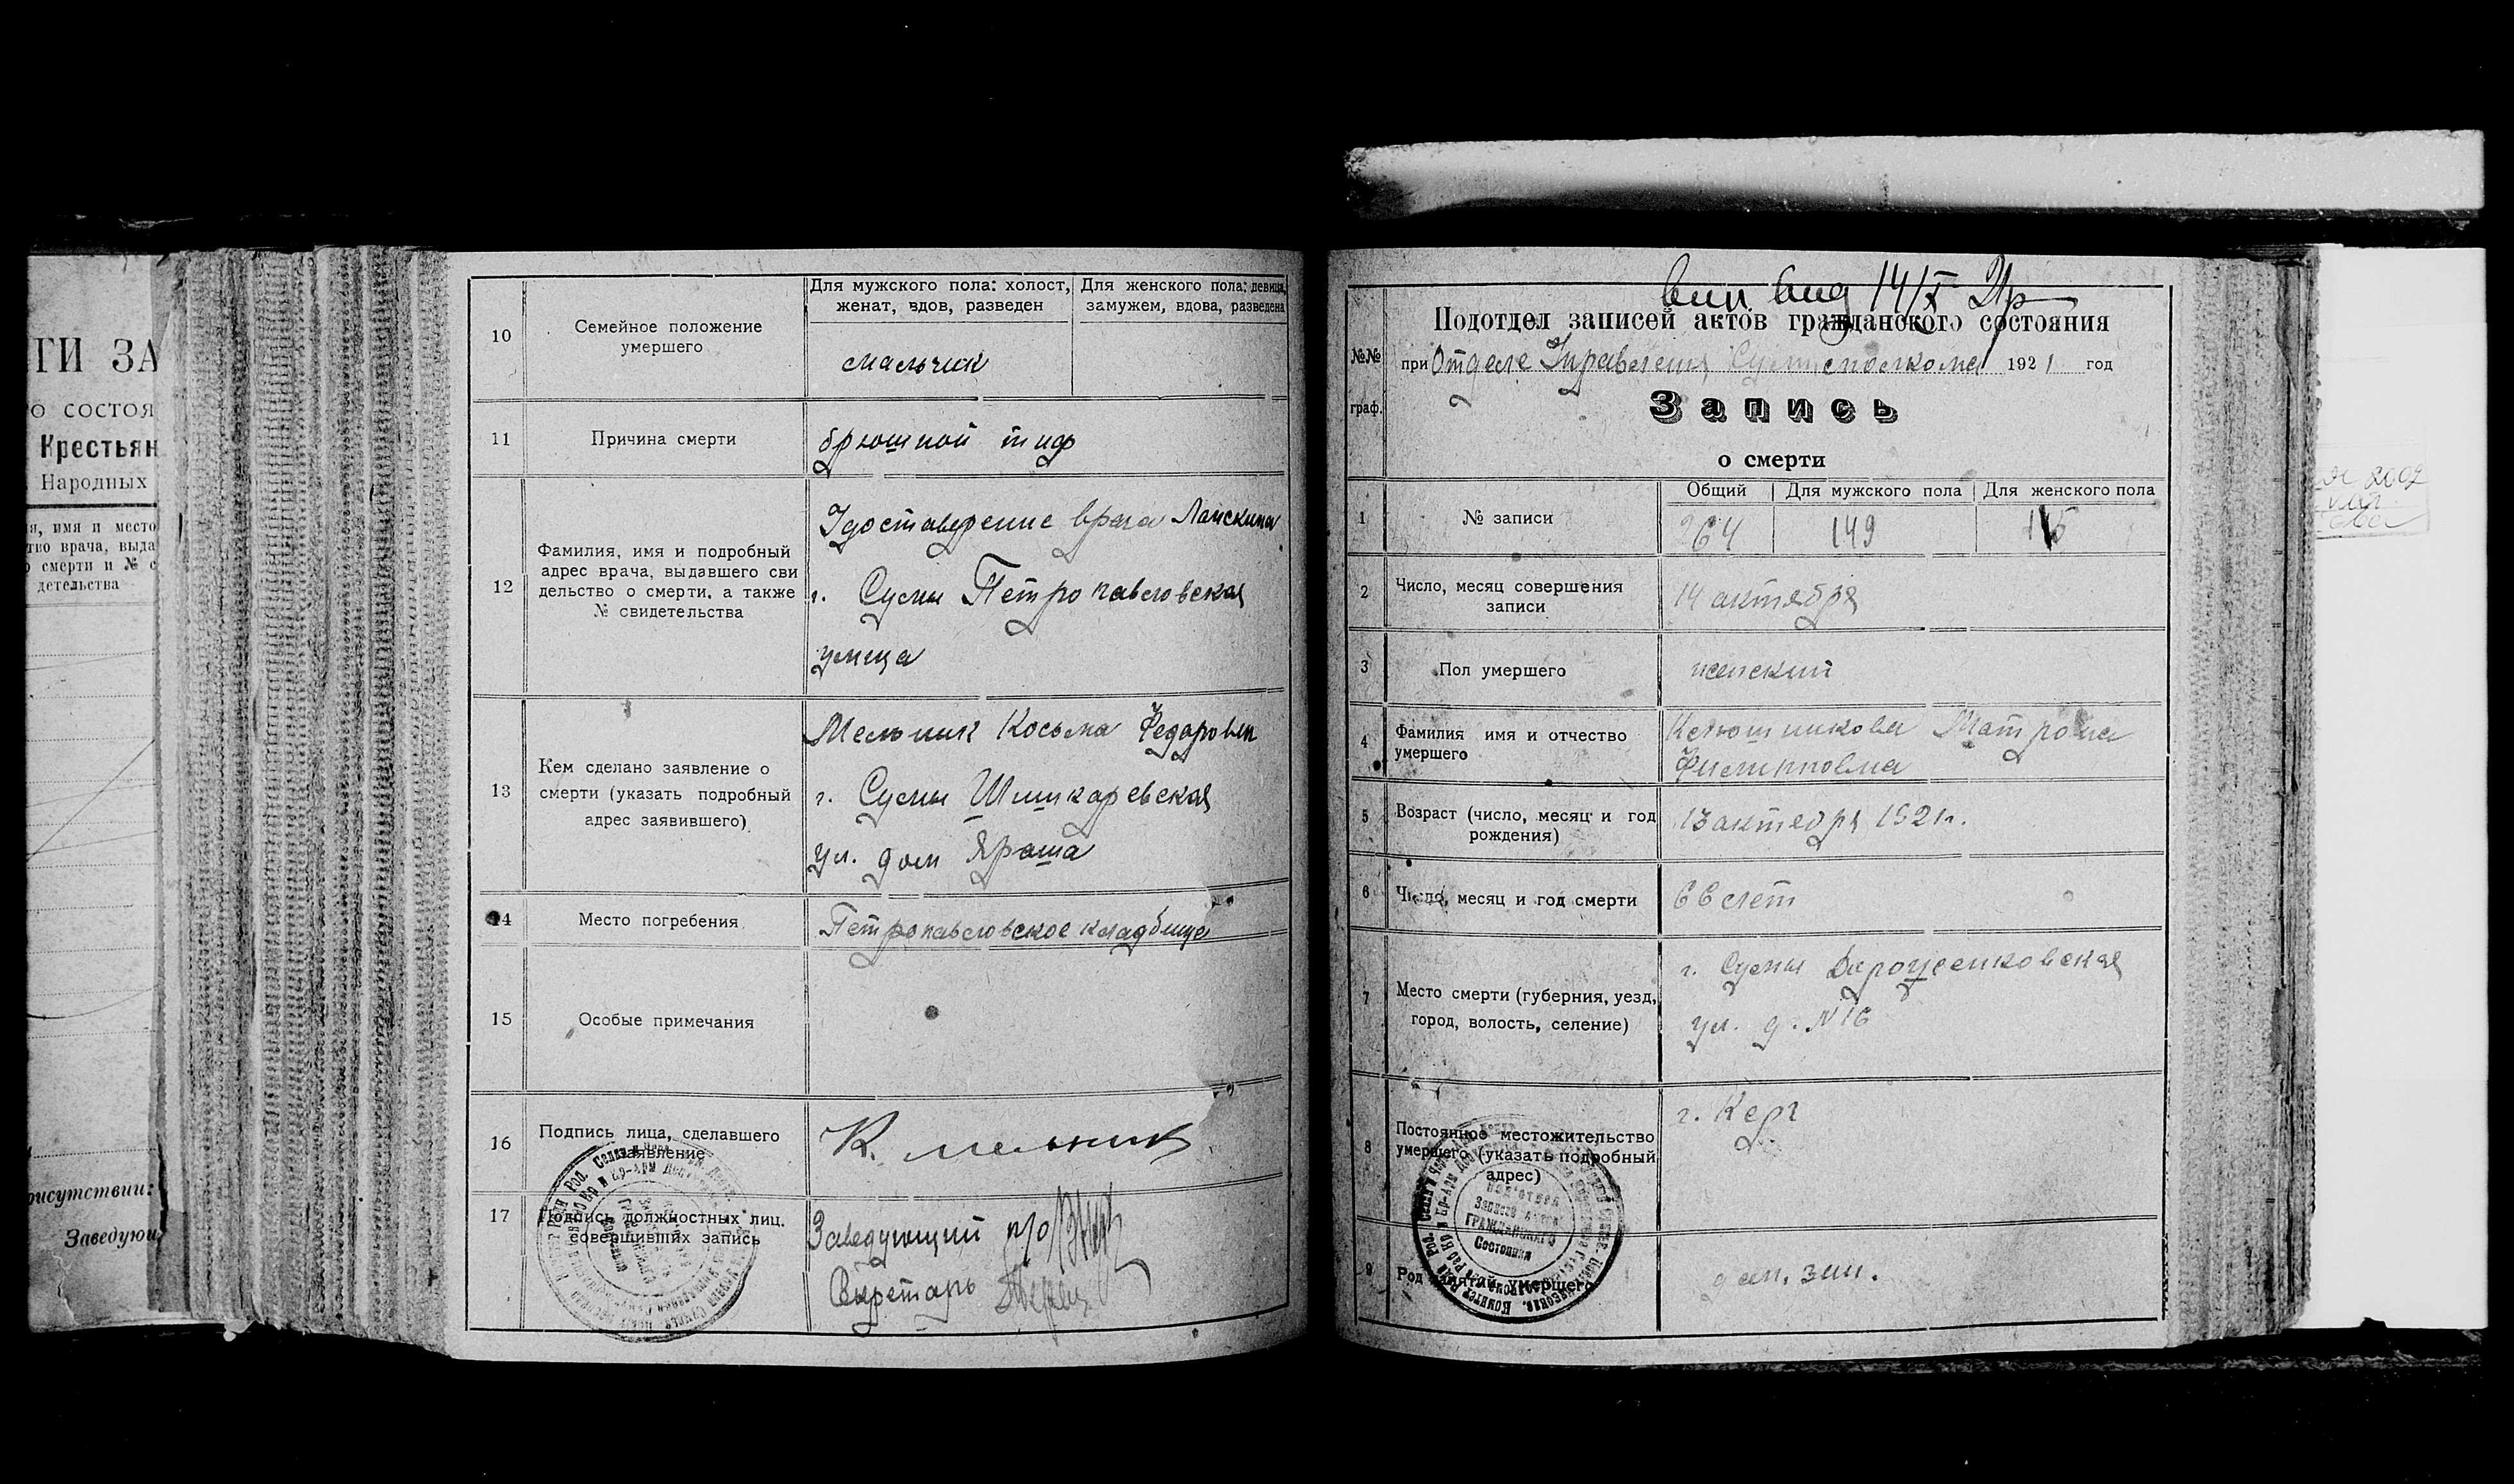 ТИ ЗА
о состоя
Крестьян
Народных
я, имя и место
тво врача, выда
о смерти и № с
детельства
рисутствии:
Заведую
10
Семейное положение
умершего
Для мужского пола: холост,
женат, вдов, разведен
Для женского пола: девица,
замужем, вдова, разведена
мальчик
11
Причина смерти
брюшной тиф
12
Фамилия, имя и подробный
адрес врача, выдавшего сви
дельство о смерти, а также
№ свидетельства
Удостоверение врача
г. Сумы Петропавловская
улица
13
Кем сделано заявление о
смерти (указать подробный
адрес заявившего)
Мельник Косьма Федорович
г. Сумы Шишкаревская
ул. дом Яроша
14
Место погребения
Петропавловское кладбище
15
Особые примечания
16
Подпись лица, сделавшего
заявление
К. мельник
17
Подпись должностных лиц.
совершивших запись
Заведующий п/о
Секретарь
14/X
№№
граф.
Подотдел записей актов гражданского состояния
при Отделе Управления 1921 год
Запись
о смерти
1
№ записи
Общий
Для мужского пола
Для женского пола
264
149
115
2
Число, месяц совершения
записи
14 октября
3
Пол умершего
женский
4
Фамилия имя и отчество
умершего
Матрона
Филипповна
5
Возраст (число, месяц и год
рождения)
13 октебря 1921г.
6
Число, месяц и год смерти
66 лет
7
Место смерти (губерния, уезд,
город, волость, селение)
г. Сумы
ул. д. №16
8
Постоянное местожительство
умершего (указать подробный
адрес)
г.
9
Род занятий умершего
дом. зан.
Записей актов
Гражданского
Состояния
2002